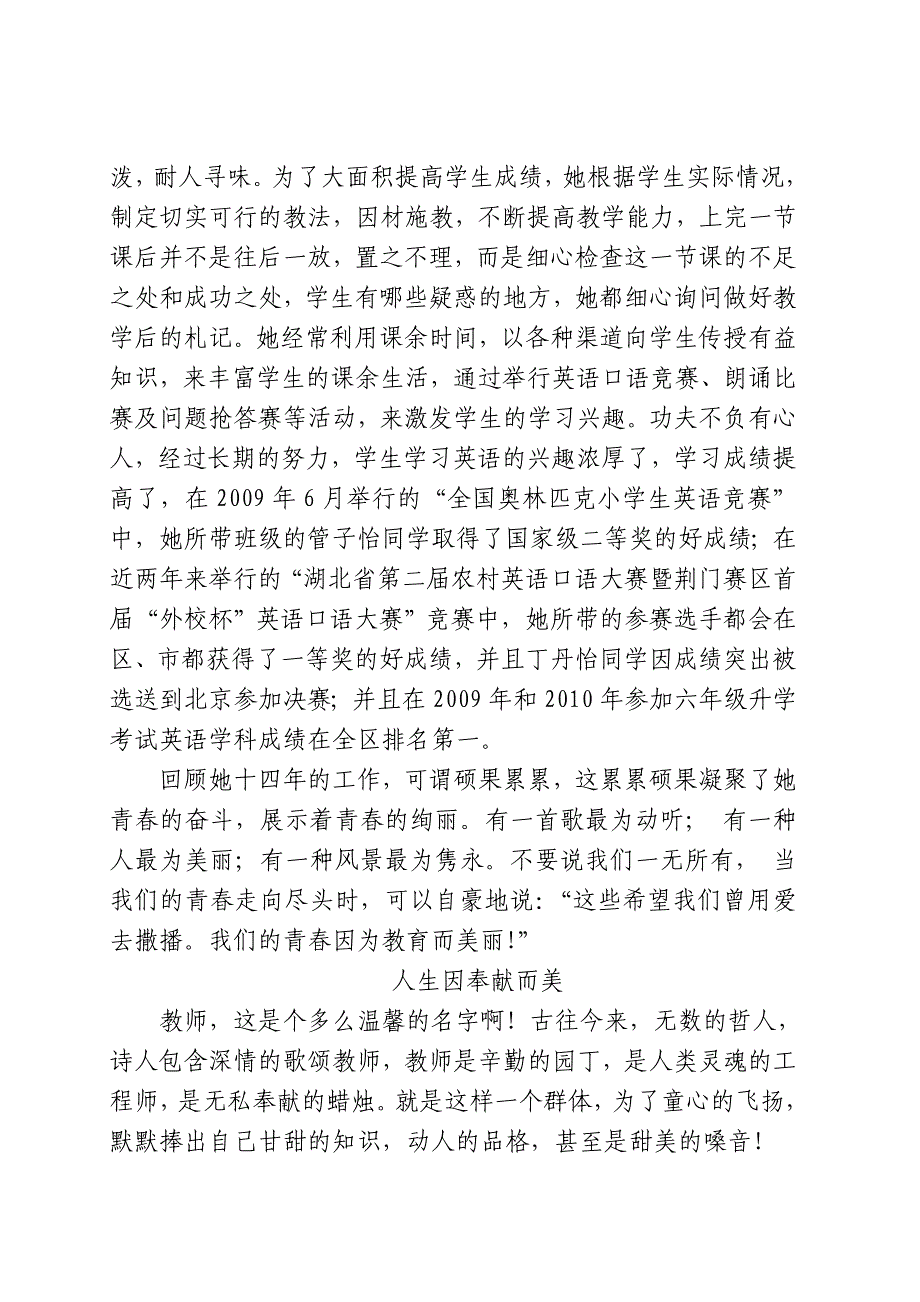 泼，耐人寻味。为了大面积提高学生成绩，她根据学生实际情况，
制定切实可行的教法，因材施教，不断提高教学能力，上完一节
课后并不是往后一放，置之不理，而是细心检查这一节课的不足
之处和成功之处，学生有哪些疑惑的地方，她都细心询问做好教
学后的札记。她经常利用课余时间，以各种渠道向学生传授有益
知识，来丰富学生的课余生活，通过举行英语口语竞赛、朗诵比
赛及问题抢答赛等活动，来激发学生的学习兴趣。功夫不负有心
人，经过长期的努力，学生学习英语的兴趣浓厚了，学习成绩提
高了，在 2009 年 6 月举行的“全国奥林匹克小学生英语竞赛”
中，她所带班级的管子怡同学取得了国家级二等奖的好成绩；在
近两年来举行的“湖北省第二届农村英语口语大赛暨荆门赛区首
届“外校杯”英语口语大赛”竞赛中，她所带的参赛选手都会在
区、市都获得了一等奖的好成绩，并且丁丹怡同学因成绩突出被
选送到北京参加决赛；并且在 2009 年和 2010 年参加六年级升学
考试英语学科成绩在全区排名第一。
回顾她十四年的工作，可谓硕果累累，这累累硕果凝聚了她
青春的奋斗，展示着青春的绚丽。有一首歌最为动听； 有一种
人最为美丽；有一种风景最为隽永。不要说我们一无所有， 当
我们的青春走向尽头时，可以自豪地说：“这些希望我们曾用爱
去撒播。我们的青春因为教育而美丽！”
人生因奉献而美
教师，这是个多么温馨的名字啊！古往今来，无数的哲人，
诗人包含深情的歌颂教师，教师是辛勤的园丁，是人类灵魂的工
程师，是无私奉献的蜡烛。就是这样一个群体，为了童心的飞扬，
默默捧出自己甘甜的知识，动人的品格，甚至是甜美的嗓音！